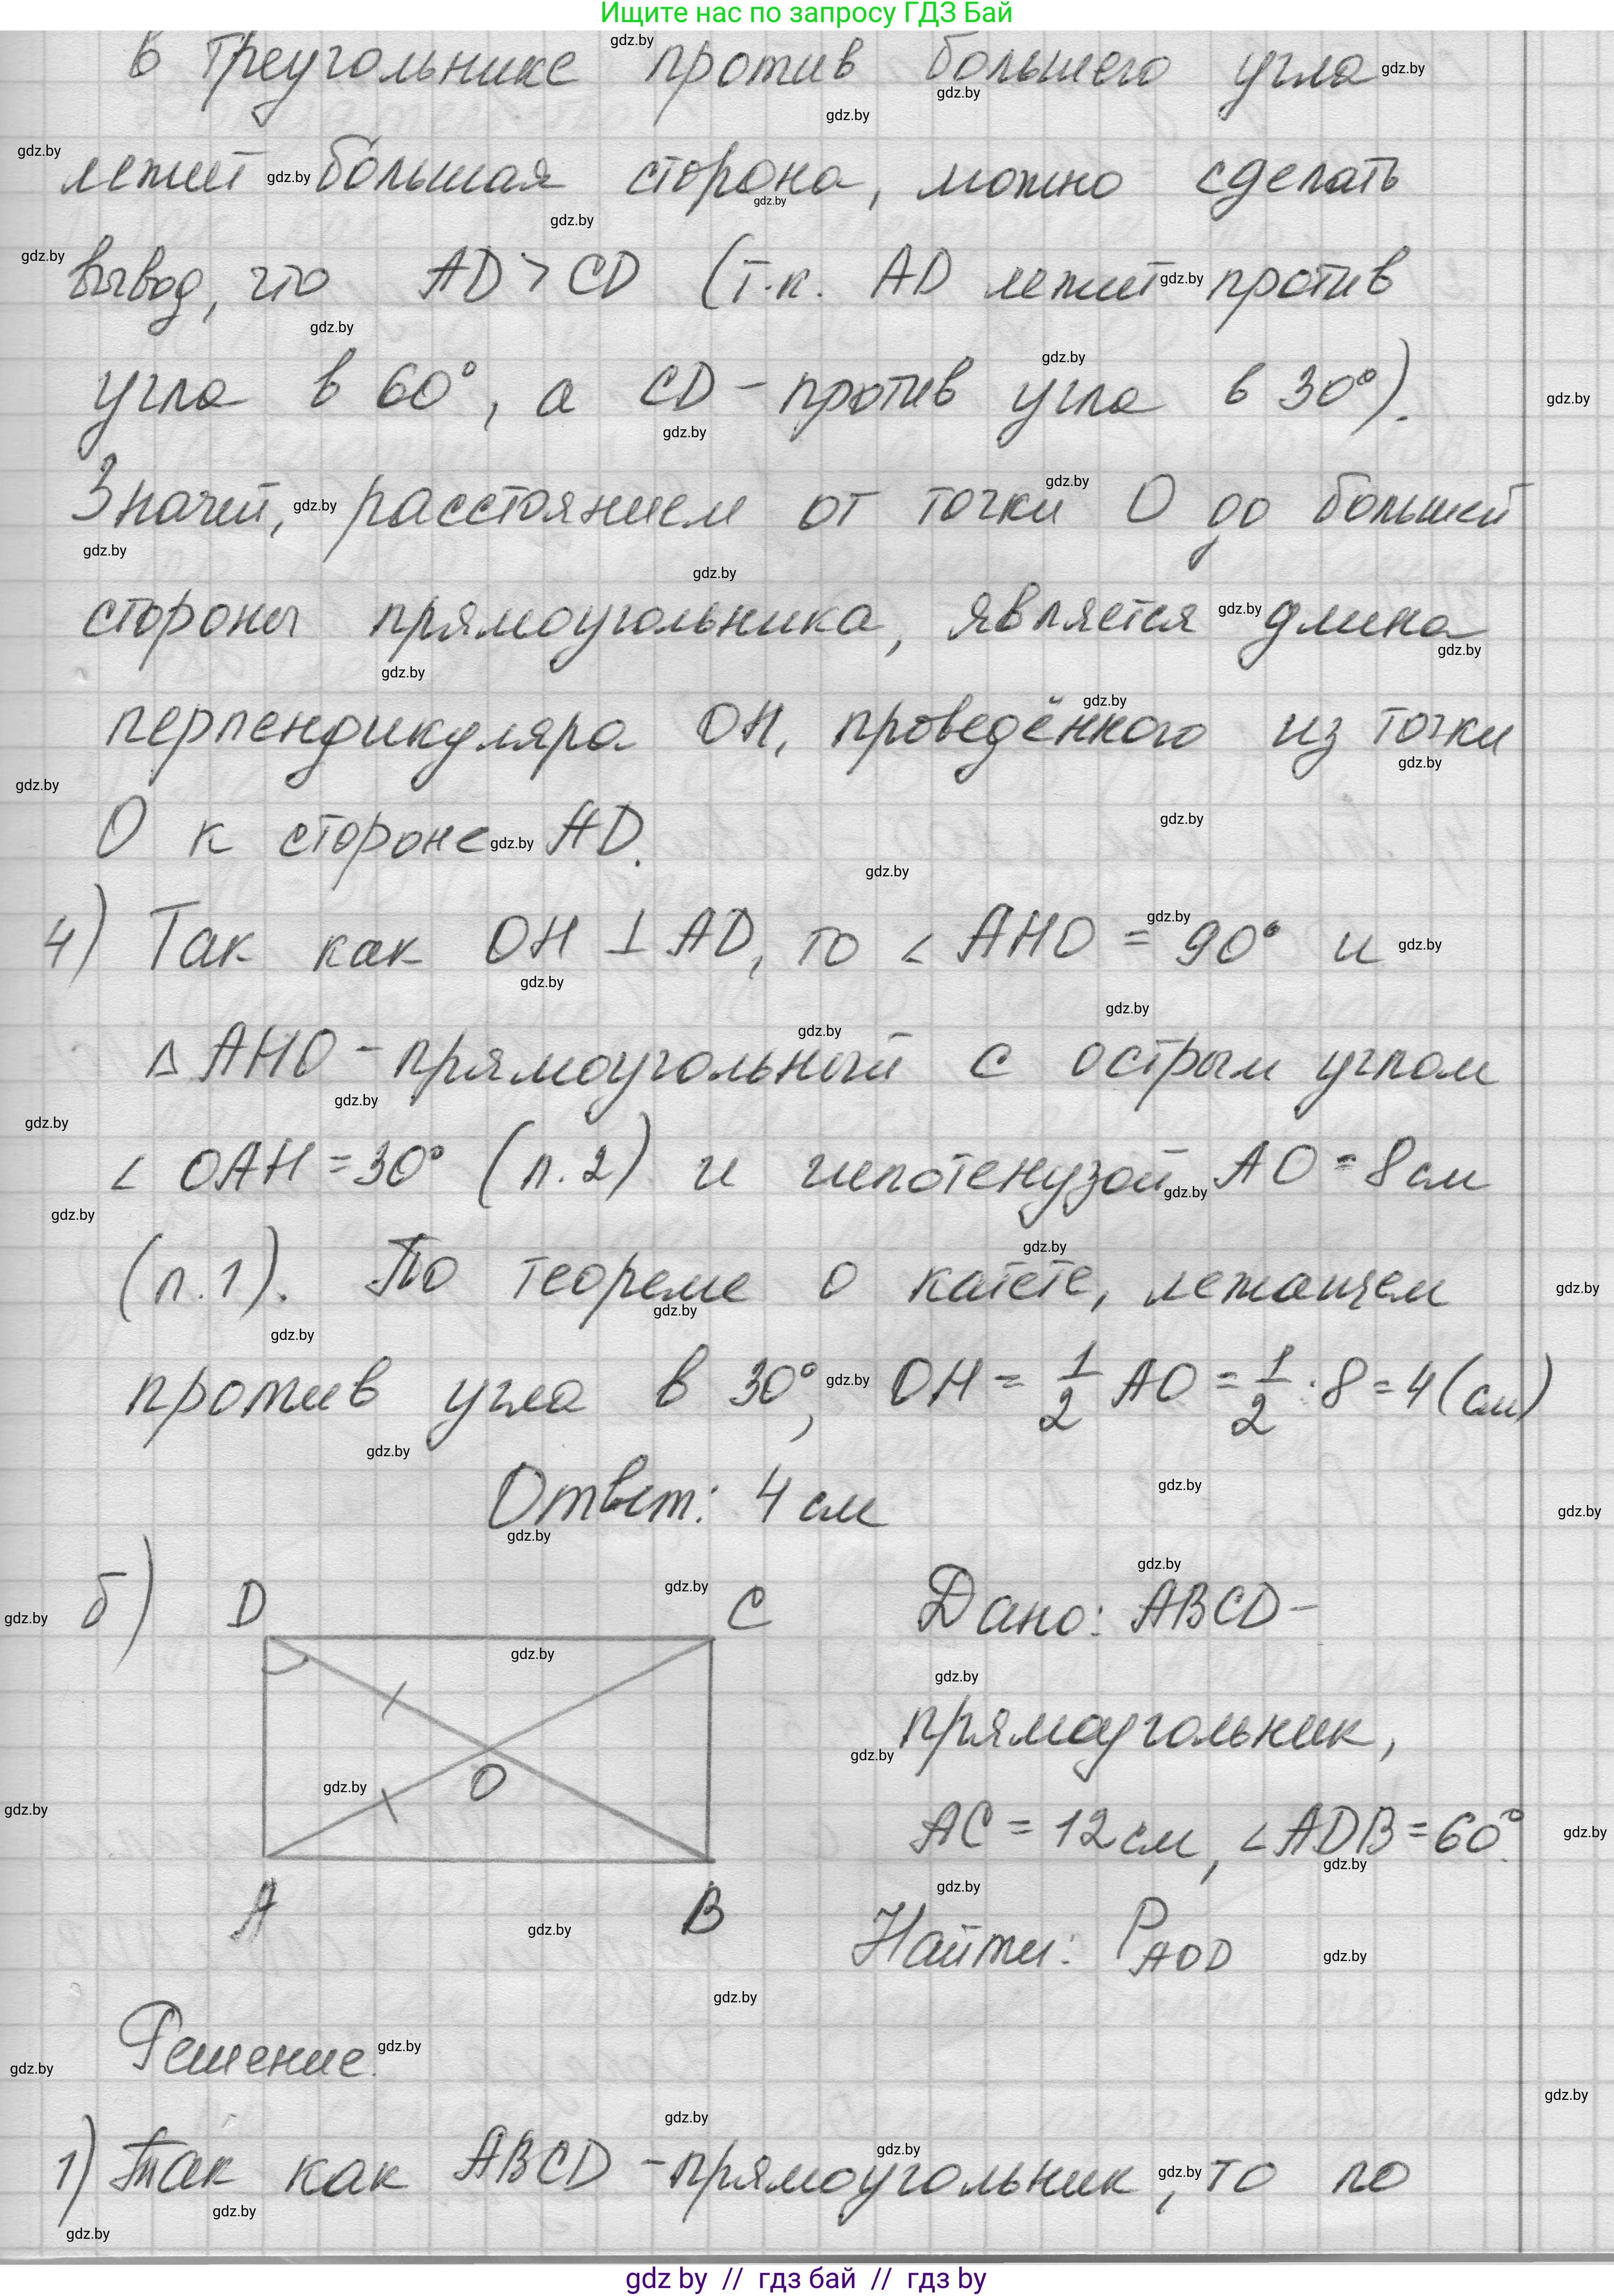 Ищите нас по запросу ГДЗ Бай
в треугольнике против большего угла
лежит большая сторона, можно сделать
вывод, что AD > CD (т.к. AD лежит против
угла в 60°, а CD - против угла в 30°).
Значит, расстоянием от точки O до большей
стороны прямоугольника, является длина
перпендикуляра OH, проведённого из точки
O к стороне AD.
4) Так как OH ⊥ AD, то ∠ AHO = 90° и
Δ AHO - прямоугольный с острым углом
∠ OAH = 30° (п.2) и гипотенузой AO = 8 см
(п.1). По теореме о катете, лежащем
против угла в 30°, OH = 1/2 AO = 1/2 · 8 = 4 (см)
Ответ: 4 см
б) D C Дано: ABCD -
прямоугольник,
O
AC = 12 см, ∠ADB = 60°.
A B Найти: P AOD
Решение.
1) Так как ABCD - прямоугольник, то по
gdz by // гдз бай // гдз by